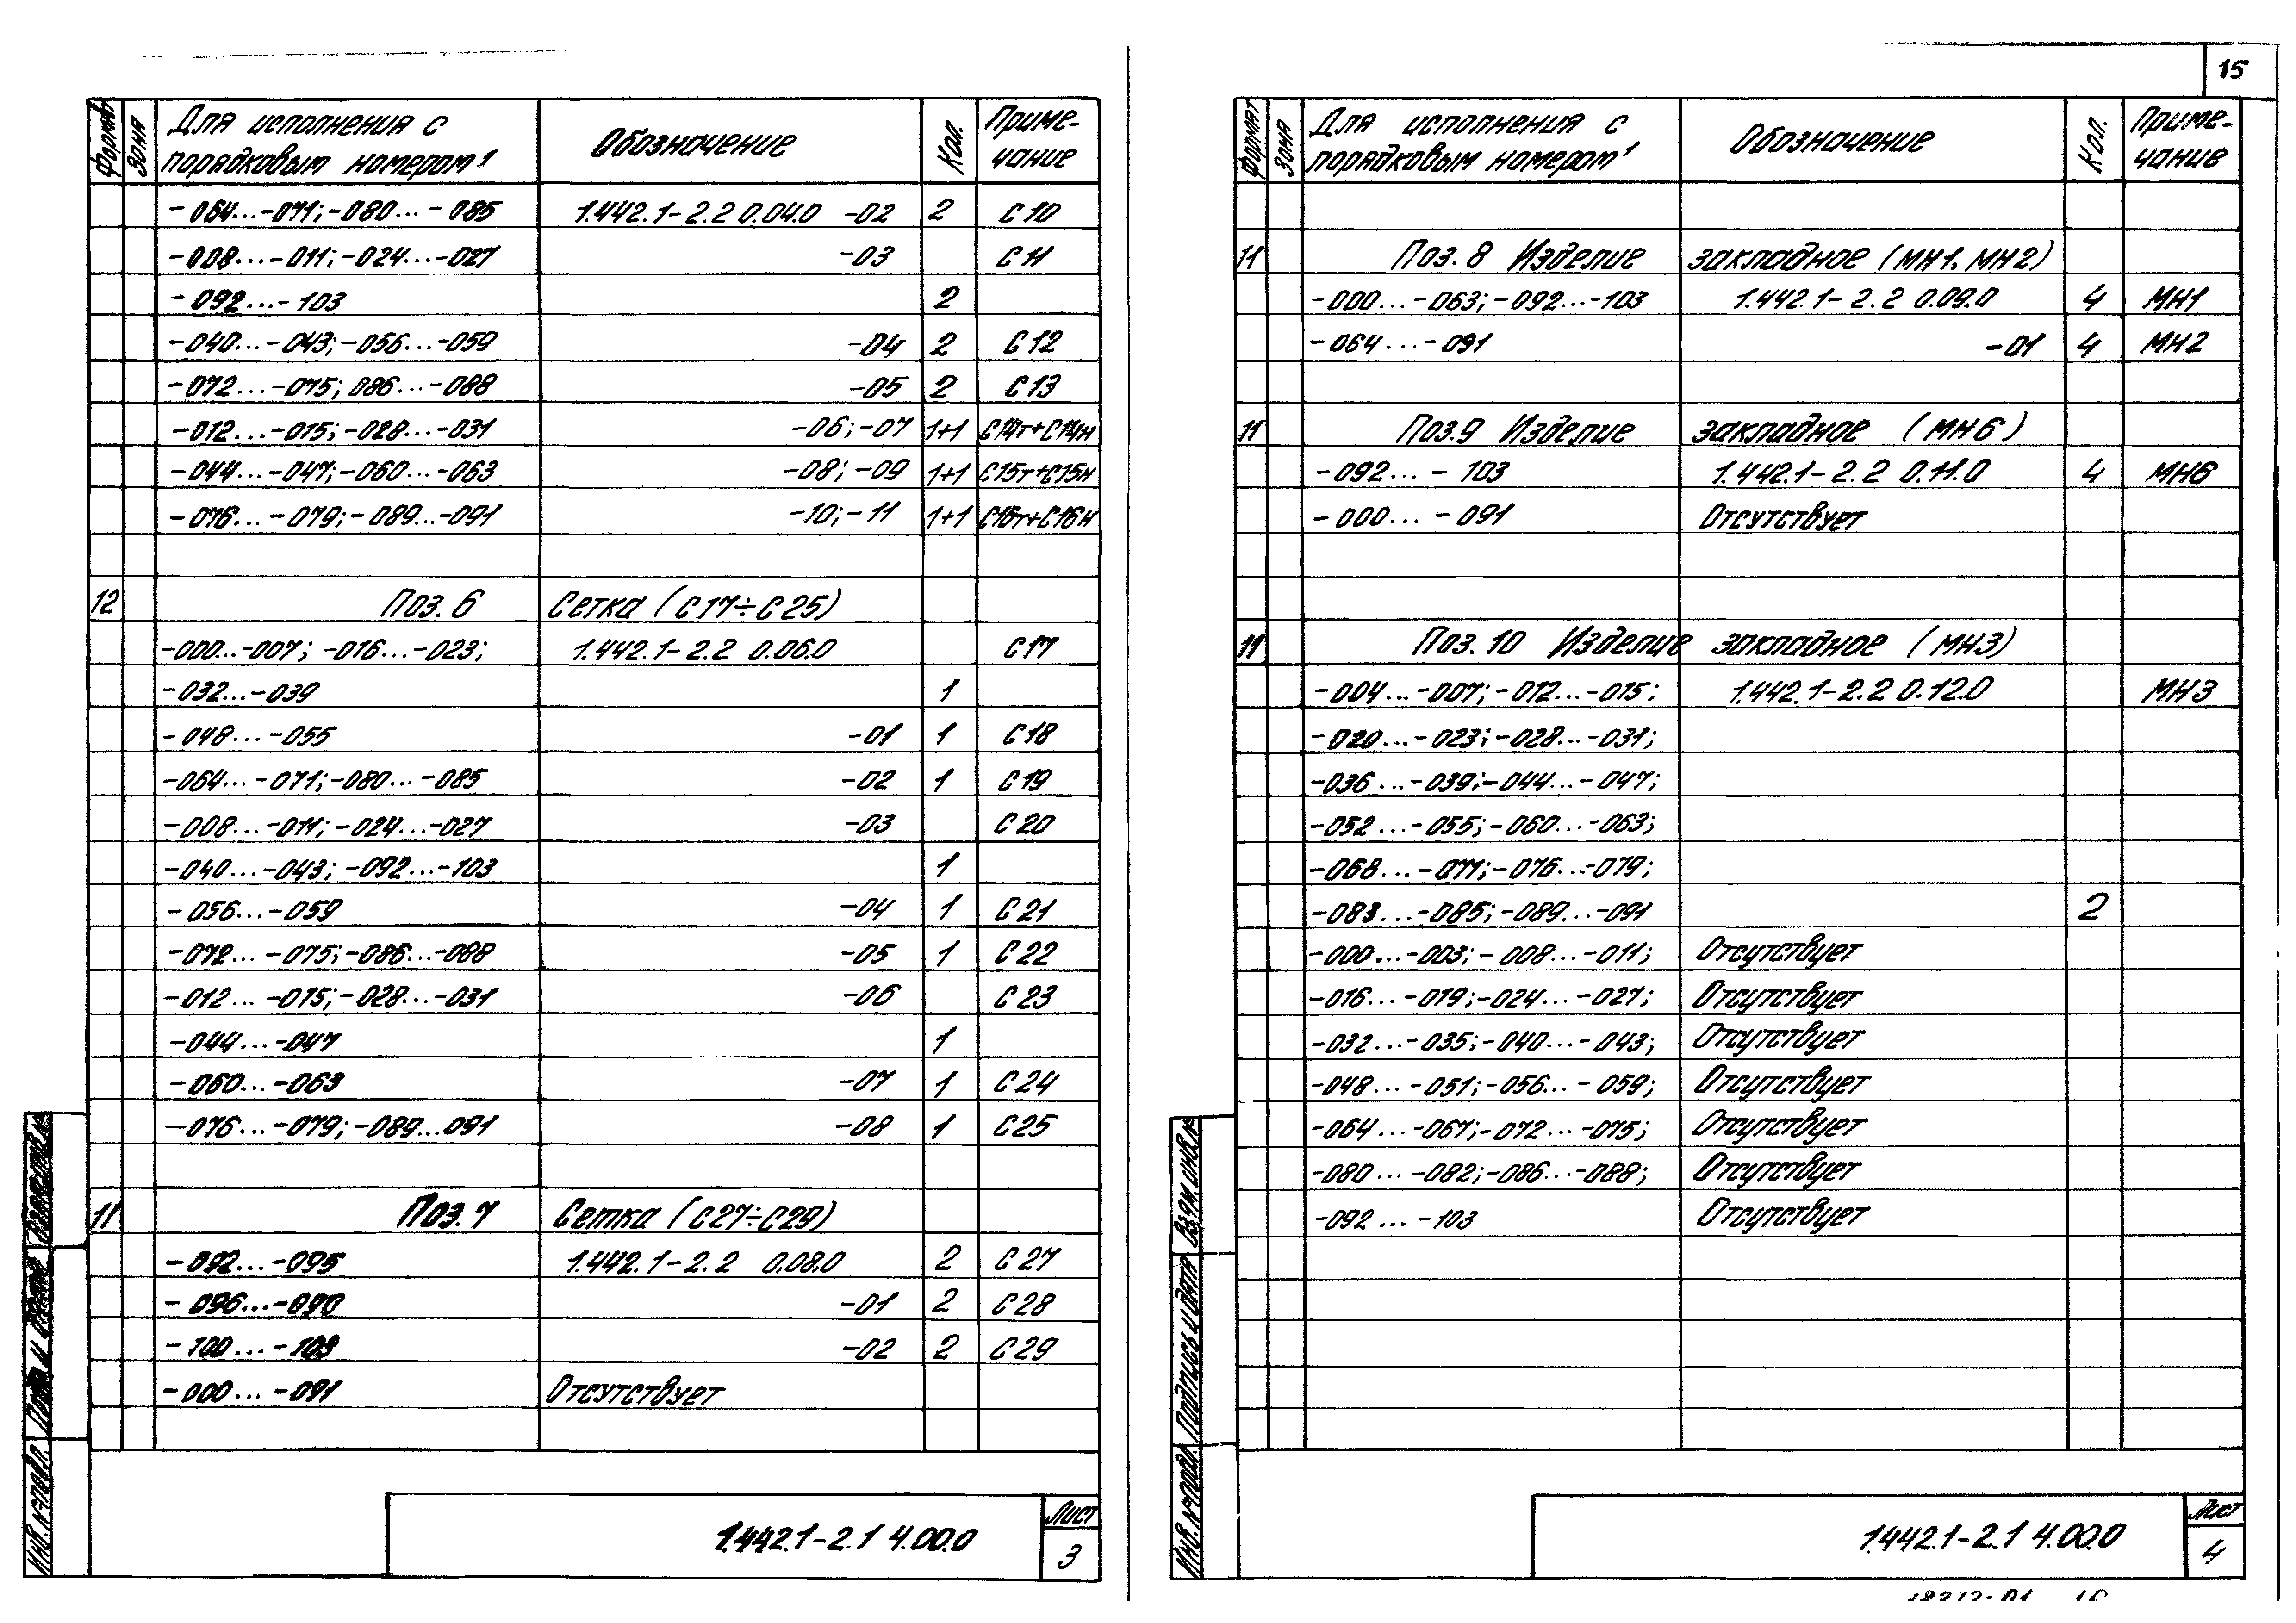 15
Формат Зона Для исполнения с порядковым номером¹ Обозначение Кол. Примечание
-064...-071; -080...-085 1.442.1-2.2 0.04.0 -02 2 С10
-008...-011; -024...-027 -03 С11
-092...-103 2
-040...-043; -056...-059 -04 2 С12
-072...-075; 086...-088 -05 2 С13
-012...-015; -028...-031 -06; -07 1+1 С14т+С14н
-044...-047; -060...-063 -08; -09 1+1 С15т+С15н
-076...-079; -089...-091 -10; -11 1+1 С16т+С16н
12 Поз. 6 Сетка (С17÷С25)
-000...-007; -016...-023; 1.442.1-2.2 0.06.0 С17
-032...-039 1
-048...-055 -01 1 С18
-064...-071; -080...-085 -02 1 С19
-008...-011; -024...-027 -03 С20
-040...-043; -092...-103 1
-056...-059 -04 1 С21
-072...-075; -086...-088 -05 1 С22
-012...-015; -028...-031 -06 С23
-044...-047 1
-060...-063 -07 1 С24
-076...-079; -089...091 -08 1 С25
11 Поз. 7 Сетка (С27÷С29)
-092...-095 1.442.1-2.2 0.08.0 2 С27
-096... -01 2 С28
-100...-103 -02 2 С29
-000...-091 Отсутствует
Инв. № подл. Подп. и дата Взам. инв. №
1.442.1-2.1 4.00.0
Лист
3
Формат Зона Для исполнения с порядковым номером¹ Обозначение Кол. Примечание
11 Поз. 8 Изделие закладное (МН1, МН2)
-000...-063; -092...-103 1.442.1-2.2 0.09.0 4 МН1
-064...-091 -01 4 МН2
11 Поз.9 Изделие закладное (МН6)
-092...-103 1.442.1-2.2 0.11.0 4 МН6
-000...-091 Отсутствует
11 Поз. 10 Изделие закладное (МН3)
-004...-007; -012...-015; 1.442.1-2.2 0.12.0 МН3
-020...-023; -028...-031;
-036...-039; -044...-047;
-052...-055; -060...-063;
-068...-071; -076...-079;
-083...-085; -089...-091 2
-000...-003; -008...-011; Отсутствует
-016...-019; -024...-027; Отсутствует
-032...-035; -040...-043; Отсутствует
-048...-051; -056...-059; Отсутствует
-064...-067; -072...-075; Отсутствует
-080...-082; -086...-088; Отсутствует
-092...-103 Отсутствует
Инв. № подл. Подпись и дата Взам. инв. №
1.442.1-2.1 4.00.0
Лист
4